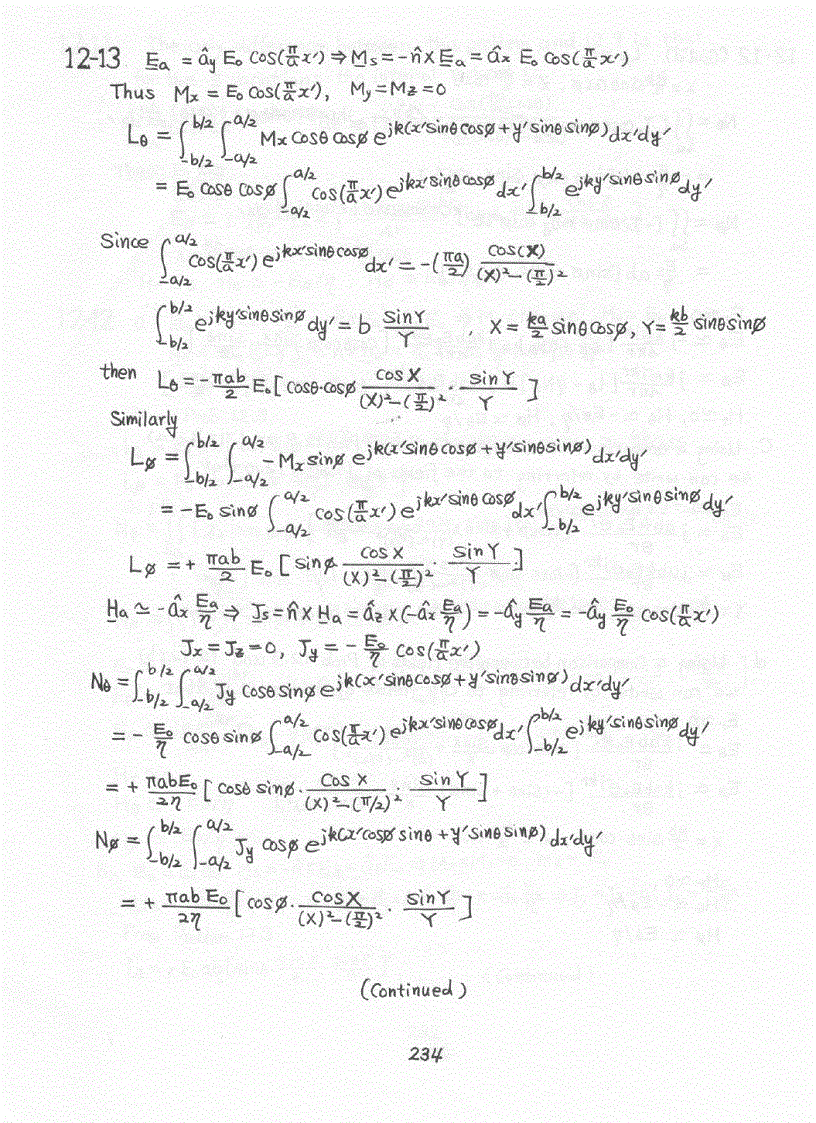 12-13 E̲a = ây E₀ cos(π/a x′) ⇒ M̲s = -n̂ × E̲a = âx E₀ cos(π/a x′)
Thus Mx = E₀ cos(π/a x′), My = Mz = 0
Lθ = ∫_{-b/2}^{b/2} ∫_{-a/2}^{a/2} Mx cosθ cosø e^{jk(x′sinθcosø + y′sinθsinø)} dx′dy′
= E₀ cosθ cosø ∫_{-a/2}^{a/2} cos(π/a x′) e^{jkx′sinθcosø} dx′ ∫_{-b/2}^{b/2} e^{jky′sinθsinø} dy′
Since ∫_{-a/2}^{a/2} cos(π/a x′) e^{jkx′sinθcosø} dx′ = -(πa/2) cos(X)/((X)²-(π/2)²)
∫_{-b/2}^{b/2} e^{jky′sinθsinø} dy′ = b sinY/Y , X = ka/2 sinθcosø, Y = kb/2 sinθsinø
then Lθ = -πab/2 E₀ [cosθ·cosø cosX/((X)²-(π/2)²) · sinY/Y]
Similarly
Lø = ∫_{-b/2}^{b/2} ∫_{-a/2}^{a/2} -Mx sinø e^{jk(x′sinθcosø + y′sinθsinø)} dx′dy′
= -E₀ sinø ∫_{-a/2}^{a/2} cos(π/a x′) e^{jkx′sinθcosø} dx′ ∫_{-b/2}^{b/2} e^{jky′sinθsinø} dy′
Lø = + πab/2 E₀ [sinø · cosX/((X)²-(π/2)²) · sinY/Y]
H̲a ≃ -âx Ea/η ⇒ J̲s = n̂ × H̲a = âz × (-âx Ea/η) = -ây Ea/η = -ây E₀/η cos(π/a x′)
Jx = Jz = 0, Jy = - E₀/η cos(π/a x′)
Nθ = ∫_{-b/2}^{b/2} ∫_{-a/2}^{a/2} Jy cosθ sinø e^{jk(x′sinθcosø + y′sinθsinø)} dx′dy′
= - E₀/η cosθ sinø ∫_{-a/2}^{a/2} cos(π/a x′) e^{jkx′sinθcosø} dx′ ∫_{-b/2}^{b/2} e^{jky′sinθsinø} dy′
= + πabE₀/2η [cosθ sinø · cosX/((X)²-(π/2)²) · sinY/Y]
Nø = ∫_{-b/2}^{b/2} ∫_{-a/2}^{a/2} Jy cosø e^{jk(x′cosø sinθ + y′sinθsinø)} dx′dy′
= + πab E₀/2η [cosø · cosX/((X)²-(π/2)²) · sinY/Y]
(Continued)
234